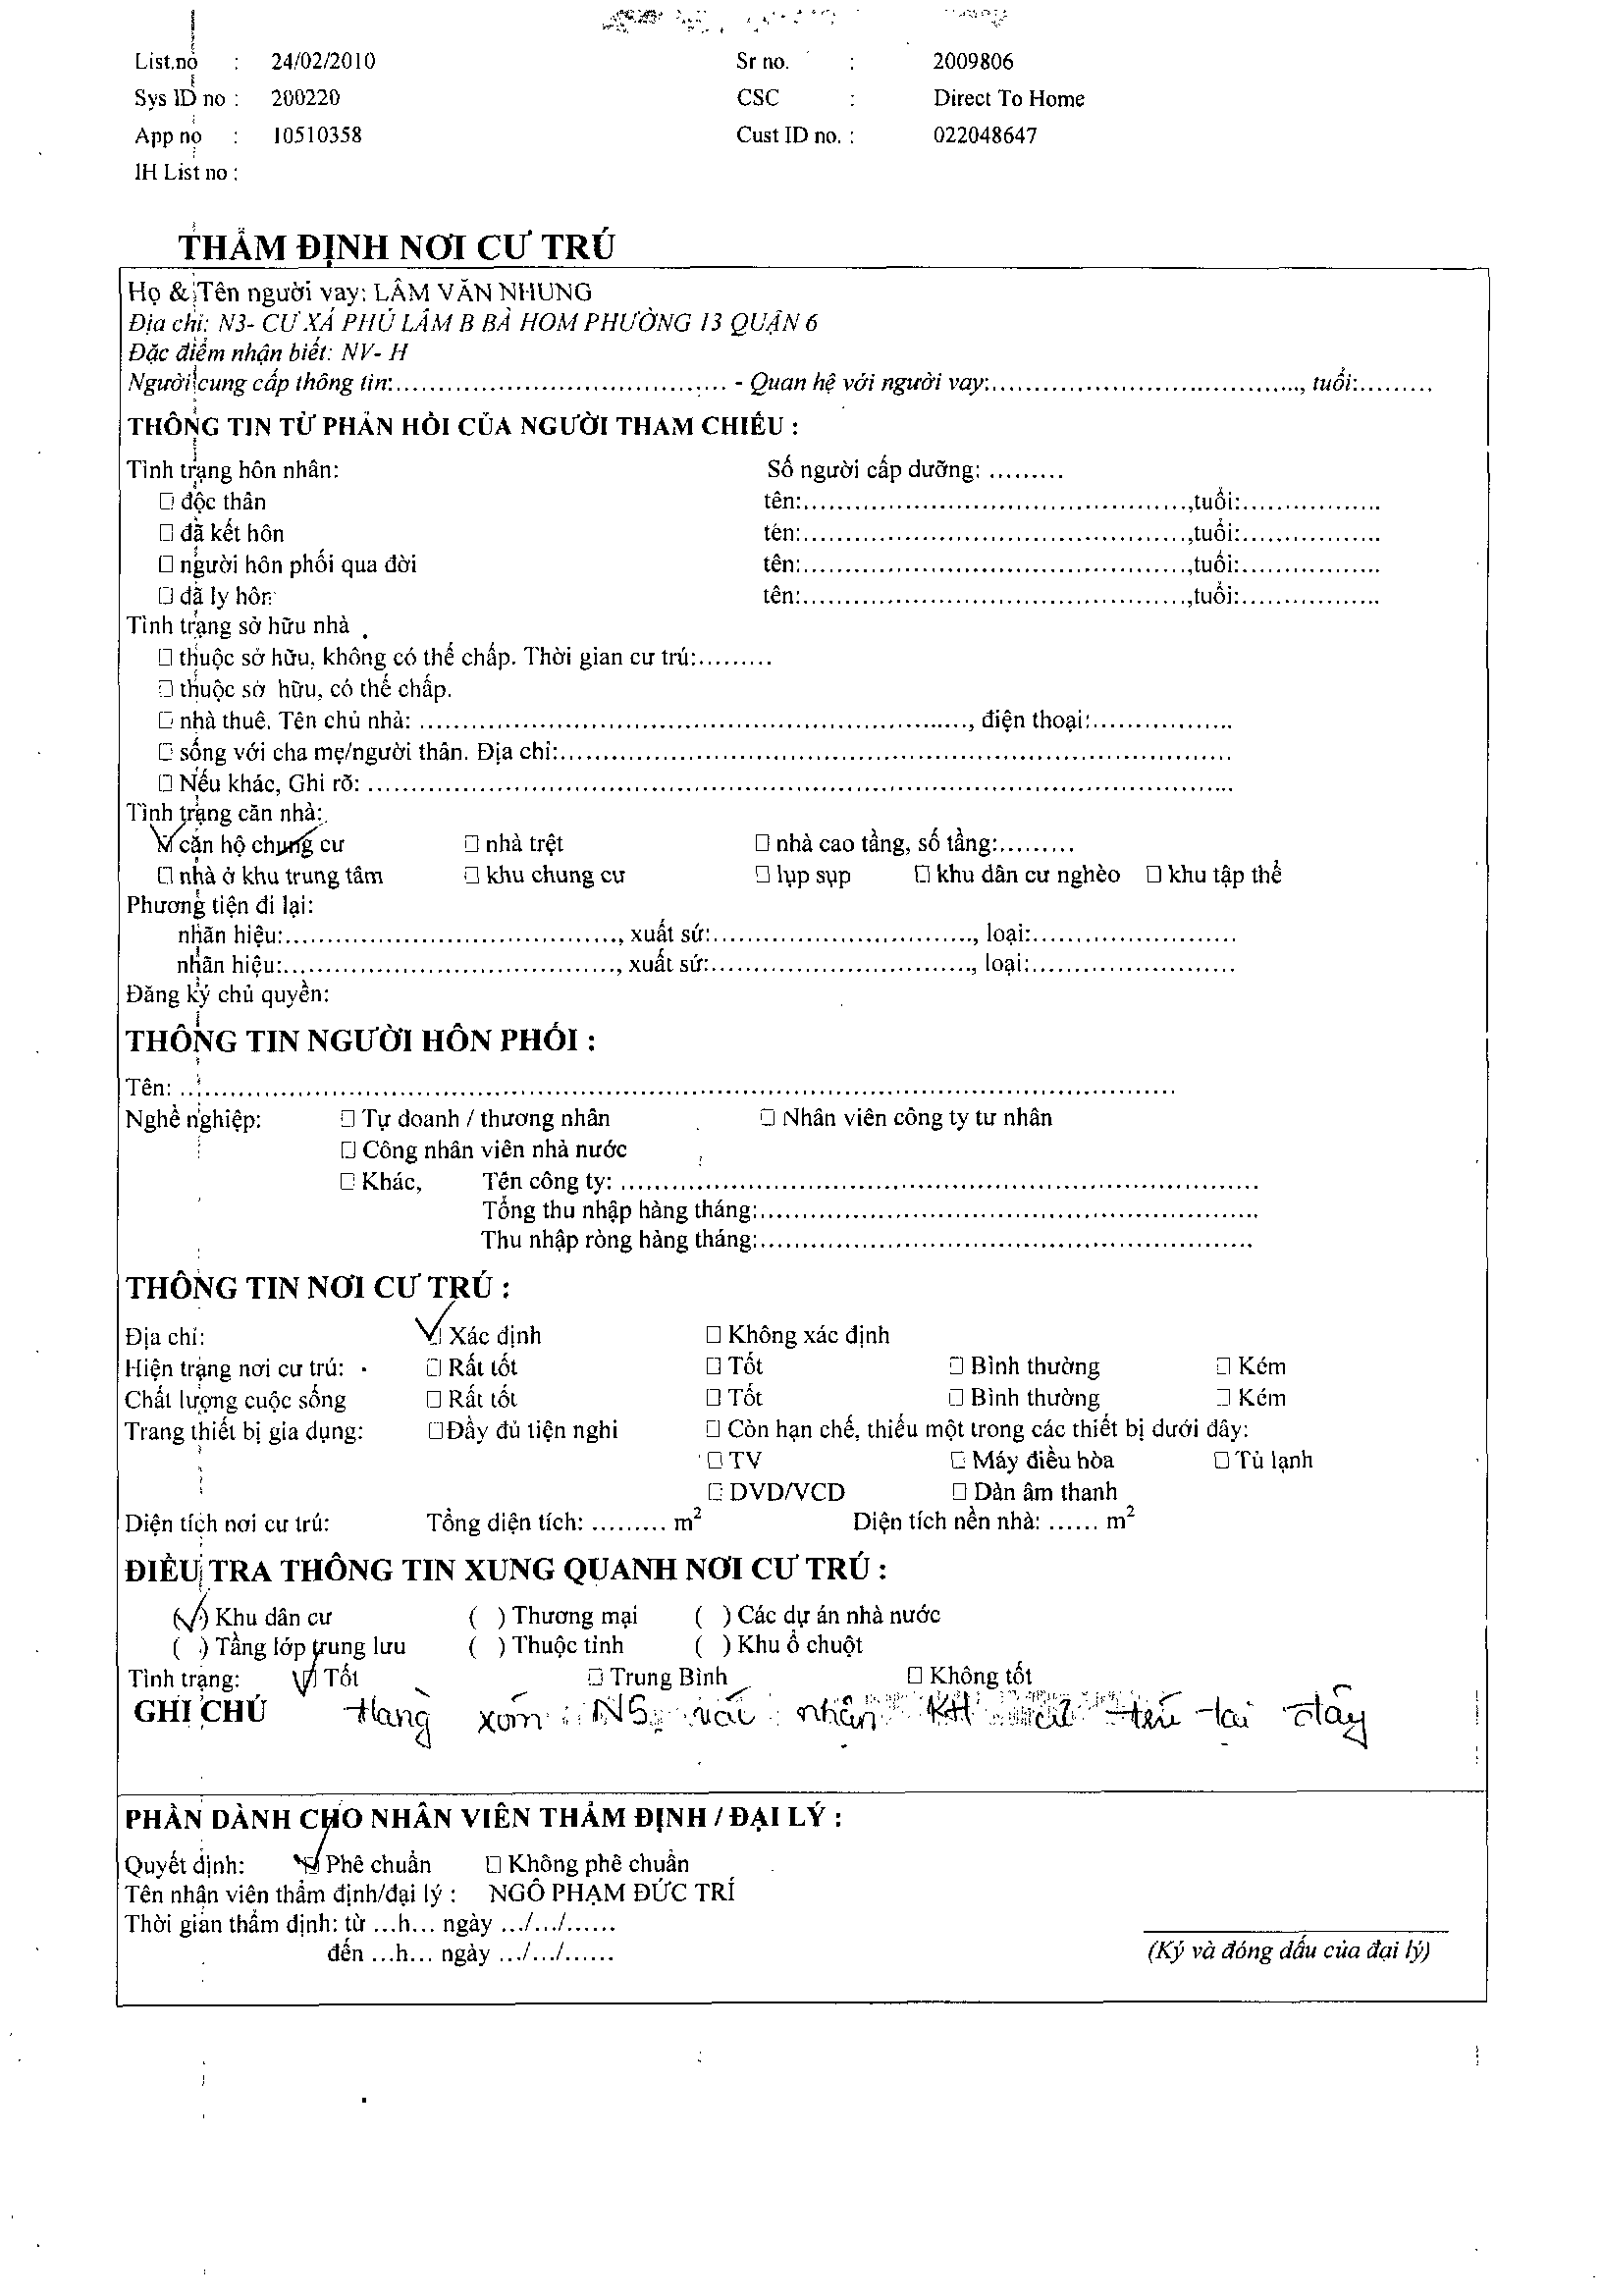 List.no : 24/02/2010 Sr no. : 2009806
Sys ID no : 200220 CSC : Direct To Home
App no : 10510358 Cust ID no. : 022048647
IH List no :
THẨM ĐỊNH NƠI CƯ TRÚ
Họ & Tên người vay: LÂM VĂN NHUNG
Địa chỉ: N3- CƯ XÁ PHÚ LÂM B BÀ HOM PHƯỜNG 13 QUẬN 6
Đặc điểm nhận biết: NV- H
Người cung cấp thông tin:..................................... - Quan hệ với người vay:..................................., tuổi:.........
THÔNG TIN TỪ PHẢN HỒI CỦA NGƯỜI THAM CHIẾU :
Tình trạng hôn nhân: Số người cấp dưỡng: .........
☐ độc thân tên:...........................................,tuổi:................
☐ đã kết hôn tên:...........................................,tuổi:................
☐ người hôn phối qua đời tên:...........................................,tuổi:................
☐ đã ly hôn tên:...........................................,tuổi:................
Tình trạng sở hữu nhà
☐ thuộc sở hữu, không có thế chấp. Thời gian cư trú:.........
☐ thuộc sở hữu, có thế chấp.
☐ nhà thuê. Tên chủ nhà: ..............................................................., điện thoại:................
☐ sống với cha mẹ/người thân. Địa chỉ:..............................................................................
☐ Nếu khác, Ghi rõ: ....................................................................................................
Tình trạng căn nhà:
☑ căn hộ chung cư ☐ nhà trệt ☐ nhà cao tầng, số tầng:.........
☐ nhà ở khu trung tâm ☐ khu chung cư ☐ lụp sụp ☐ khu dân cư nghèo ☐ khu tập thể
Phương tiện đi lại:
nhãn hiệu:......................................, xuất sứ:............................., loại:.......................
nhãn hiệu:......................................, xuất sứ:............................., loại:.......................
Đăng ký chủ quyền:
THÔNG TIN NGƯỜI HÔN PHỐI :
Tên: ....................................................................................................................
Nghề nghiệp: ☐ Tự doanh / thương nhân ☐ Nhân viên công ty tư nhân
☐ Công nhân viên nhà nước
☐ Khác, Tên công ty: .........................................................................
Tổng thu nhập hàng tháng:.........................................................
Thu nhập ròng hàng tháng:.........................................................
THÔNG TIN NƠI CƯ TRÚ :
Địa chỉ: ☑ Xác định ☐ Không xác định
Hiện trạng nơi cư trú: ☐ Rất tốt ☐ Tốt ☐ Bình thường ☐ Kém
Chất lượng cuộc sống ☐ Rất tốt ☐ Tốt ☐ Bình thường ☐ Kém
Trang thiết bị gia dụng: ☐Đầy đủ tiện nghi ☐ Còn hạn chế, thiếu một trong các thiết bị dưới đây:
☐ TV ☐ Máy điều hòa ☐ Tủ lạnh
☐ DVD/VCD ☐ Dàn âm thanh
Diện tích nơi cư trú: Tổng diện tích: ......... m² Diện tích nền nhà: ...... m²
ĐIỀU TRA THÔNG TIN XUNG QUANH NƠI CƯ TRÚ :
(✓) Khu dân cư ( ) Thương mại ( ) Các dự án nhà nước
( ) Tầng lớp trung lưu ( ) Thuộc tỉnh ( ) Khu ổ chuột
Tình trạng: ☑ Tốt ☐ Trung Bình ☐ Không tốt
GHI CHÚ Hàng xóm NS xác nhận KH cư trú tại đây
PHẦN DÀNH CHO NHÂN VIÊN THẨM ĐỊNH / ĐẠI LÝ :
Quyết định: ☑ Phê chuẩn ☐ Không phê chuẩn
Tên nhân viên thẩm định/đại lý : NGÔ PHẠM ĐỨC TRÍ
Thời gian thẩm định: từ ...h... ngày .../.../......
đến ...h... ngày .../.../......
(Ký và đóng dấu của đại lý)